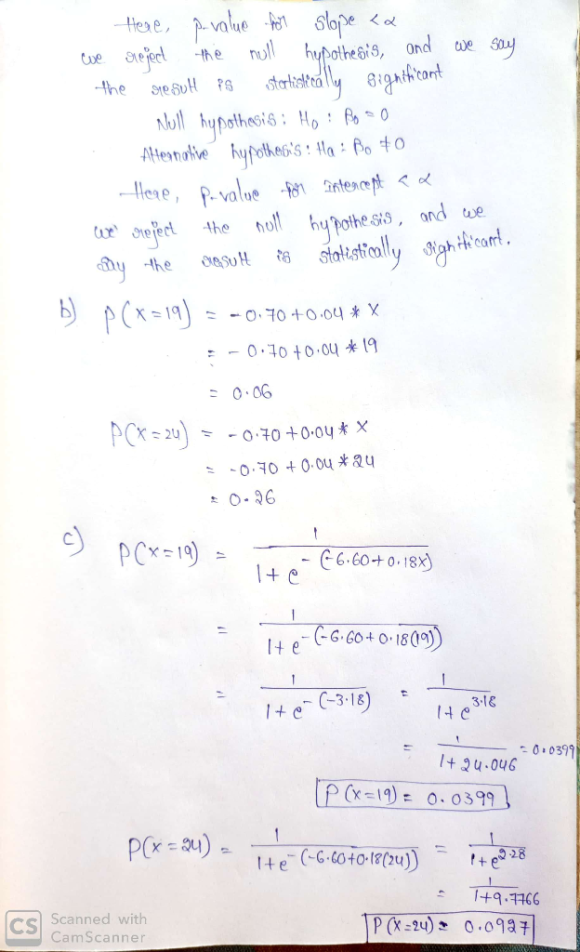 Here, p-value for slope < α
we reject the null hypothesis, and we say
the result is statistically significant
Null hypothesis: H₀ : β₀ = 0
Alternative hypothesis: Ha : β₀ ≠ 0
Here, p-value for intercept < α
we reject the null hypothesis, and we
say the result is statistically significant.
b) P(X=19) = -0.70+0.04 * X
= -0.70+0.04 * 19
= 0.06
P(X=24) = -0.70+0.04 * X
= -0.70 + 0.04 * 24
= 0.26
c) P(X=19) = 1/(1+e^-(-6.60+0.18X))
= 1/(1+e^-(-6.60+0.18(19)))
= 1/(1+e^-(-3.18)) = 1/(1+e^3.18)
= 1/(1+24.046) = 0.0399
P(X=19) = 0.0399
P(X=24) = 1/(1+e^-(-6.60+0.18(24))) = 1/(1+e^2.28)
= 1/(1+9.7766)
P(X=24) = 0.0927
CS Scanned with
CamScanner